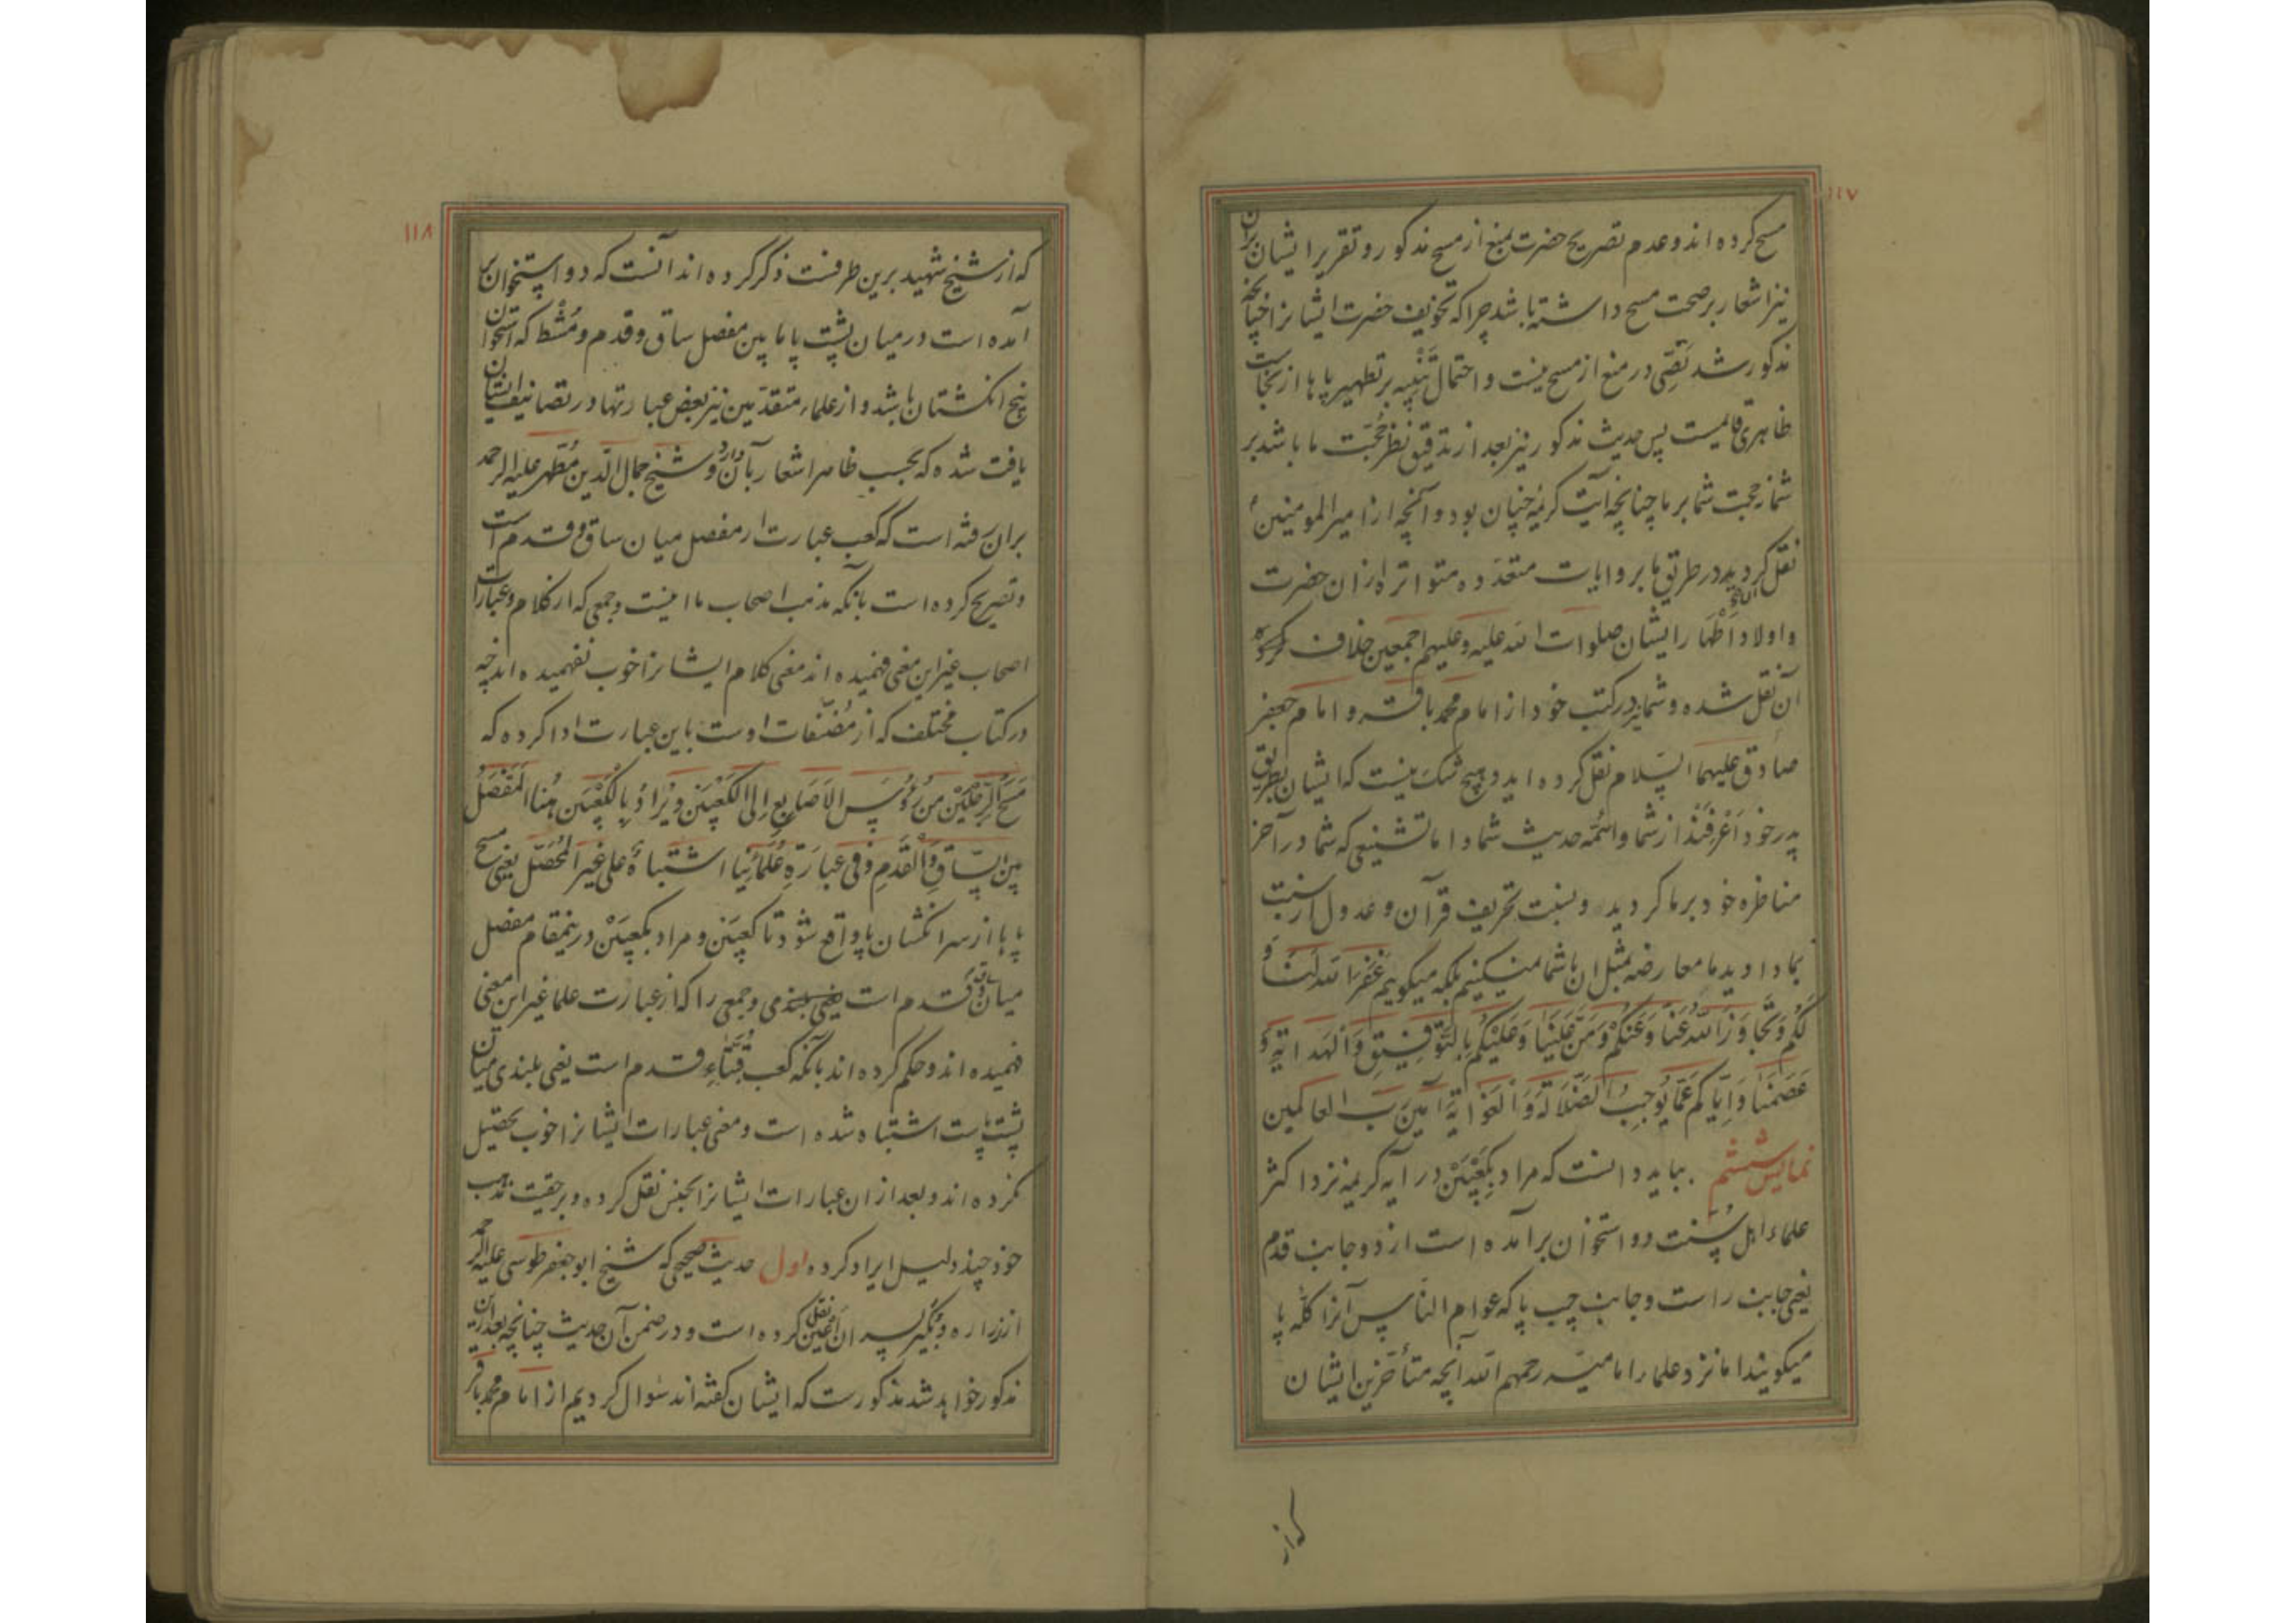 ١١٧
مسح کرده اند و عدم تصریح حضرت بمنع از مسح مذکور و تقریر ایشان بران
نیز اشعار بر صحت مسح داشته باشد چرا که تخویف حضرت ایشانرا چنانچه
مذکور شد نصّی در منع از مسح نیست و احتمال تنبیه بر تطهیر پاها از نجاست
ظاهری قائمست پس حدیث مذکور نیز بعد از تدقیق نظر حجّت ما باشد بر
شما نه حجت شما بر ما چنانچه آیت کریمه چنان بود و آنچه از امیر المومنین ع
نقل کردید در طریق ما بروایات متعدّده متواتره ازان حضرت
و اولاد اطهار ایشان صلوات الله علیه و علیهم اجمعین خلاف
آن نقل شده و شما نیز در کتب خود از امام محمد باقر و امام جعفر
صادق علیهما السّلام نقل کرده اید و هیچ شک نیست که ایشان بطریق
پدر خود اَعْرفند از شما و ائمّه حدیث شما و اما تشنیعی که شما در آخر
مناظره خود بر ما کردید و نسبت تحریف قرآن و عدول از سنت
بما دادید ما معارضه بمثل ان با شما نمیکنیم بلکه میکوییم غَفَرَ الله لَنَا وَ
لَکُم وَ تَجَاوَزَ اللّٰه عَنَّا وَ عَنکُمْ وَ مَنَّ عَلَیْنَا وَ عَلَیْکُمْ بِالتَّوفِیقِ وَ الْهِدَایَةِ وَ
عَصَمَنَا وَ اِیَّاکُم عَمَّا یُوجِبُ الضَّلَالَةَ وَ الْغَوَایَةَ آمین رَبّ العالمین
نمایش ششم بباید دانست که مراد بکَعْبَیْن در آیه کریمه نزد اکثر
علماء اهل سُنّت دو استخوان برآمده است از دو جانب قدم
یعنی جانب راست و جانب چپ پا که عوام النّاس آنرا کلّه پا
میکویند اما نزد علماء امامیّه رحمهم الله آنچه متأخّرین ایشان
که از
١١٨
که از شیخ شهید برین طرفست ذکر کرده اند آنست که دو استخوان بر
آمده است در میان پشت پا ما بین مفصل ساق و قدم و مُشْط که استخوان
پنج انکشتان باشد و از علماء متقدّمین نیز بعض عبارتها در تصانیف ایشان
یافت شده که بحسب ظاهر اشعار بآن دارد و شیخ جمال الدّین مُطَهّر علیه الرحمه
بران رفته است که کعب عبارت از مفصل میان ساق و قدم است
و تصریح کرده است بآنکه مذهب اصحاب ما اینست و جمعی که از کلام و عبارات
اصحاب غیر این معنی فهمیده اند معنی کلام ایشانرا خوب نفهمیده اند چه
در کتاب مختلف که از مُصَنّفات اوست باین عبارت ادا کرده که
مَسْحُ الرِّجْلَیْن مِنْ رُؤُسِ الاَصَابِعِ اِلَی الکَعْبَیْنِ وَ یُرَادُ بِالْکَعْبَیْن هُنَا الْمَفْصَلُ
بَیْنَ السَّاقِ وَ الْقَدَمِ وَ فِی عِبَارَةِ عُلَمَائِنَا اشْتِبَاهٌ عَلی غَیْرِ الْمُحَصّل یعنی مسح
پاها از سر انکشتان پا واقع شود تا کعبین و مراد بکعبین درینمقام مفصل
میان ساق و قدم است و جمعی را که از عبارت علما غیر این معنی
فهمیده اند و حکم کرده اند بآنکه کعب قُبّهٔ قدم است یعنی بلندی میان
پشت پاست اشتباه شده است و معنی عبارات ایشانرا خوب تحصیل
نکرده اند و بعد از ان عبارات ایشانرا بجنس نقل کرده و بر حقیت مذهب
خود چند دلیل ایراد کرده اول حدیث صحیحی که شیخ ابو جعفر طوسی علیه الرحمه
از زراره و بُکیر پسران اَعْیَن نقل کرده است و در ضمن آن حدیث چنانچه بعد ازین
مذکور خواهد شد مذکورست که ایشان کفته اند سُوال کردیم از امام محمد باقر